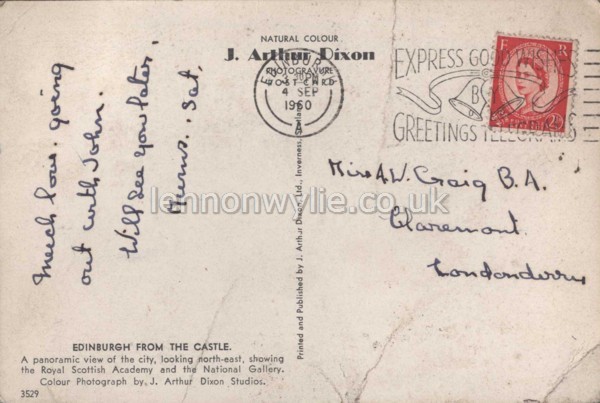 NATURAL COLOUR
J. Arthur Dixon
PHOTOGRAVURE
POST CARD
4 SEP
1960
A
EXPRESS GOOD WISHES
BY
GREETINGS TELEGRAMS
Much love. going
out with John.
Will see you later.
Mums.. Sat.
Miss A.W. Craig B.A.
Claremont.
Londonderry
lennonwylie.co.uk
Printed and Published by J. Arthur Dixon, Ltd., Inverness, Scotland
EDINBURGH FROM THE CASTLE.
A panoramic view of the city, looking north-east, showing
the Royal Scottish Academy and the National Gallery.
Colour Photograph by J. Arthur Dixon Studios.
3529